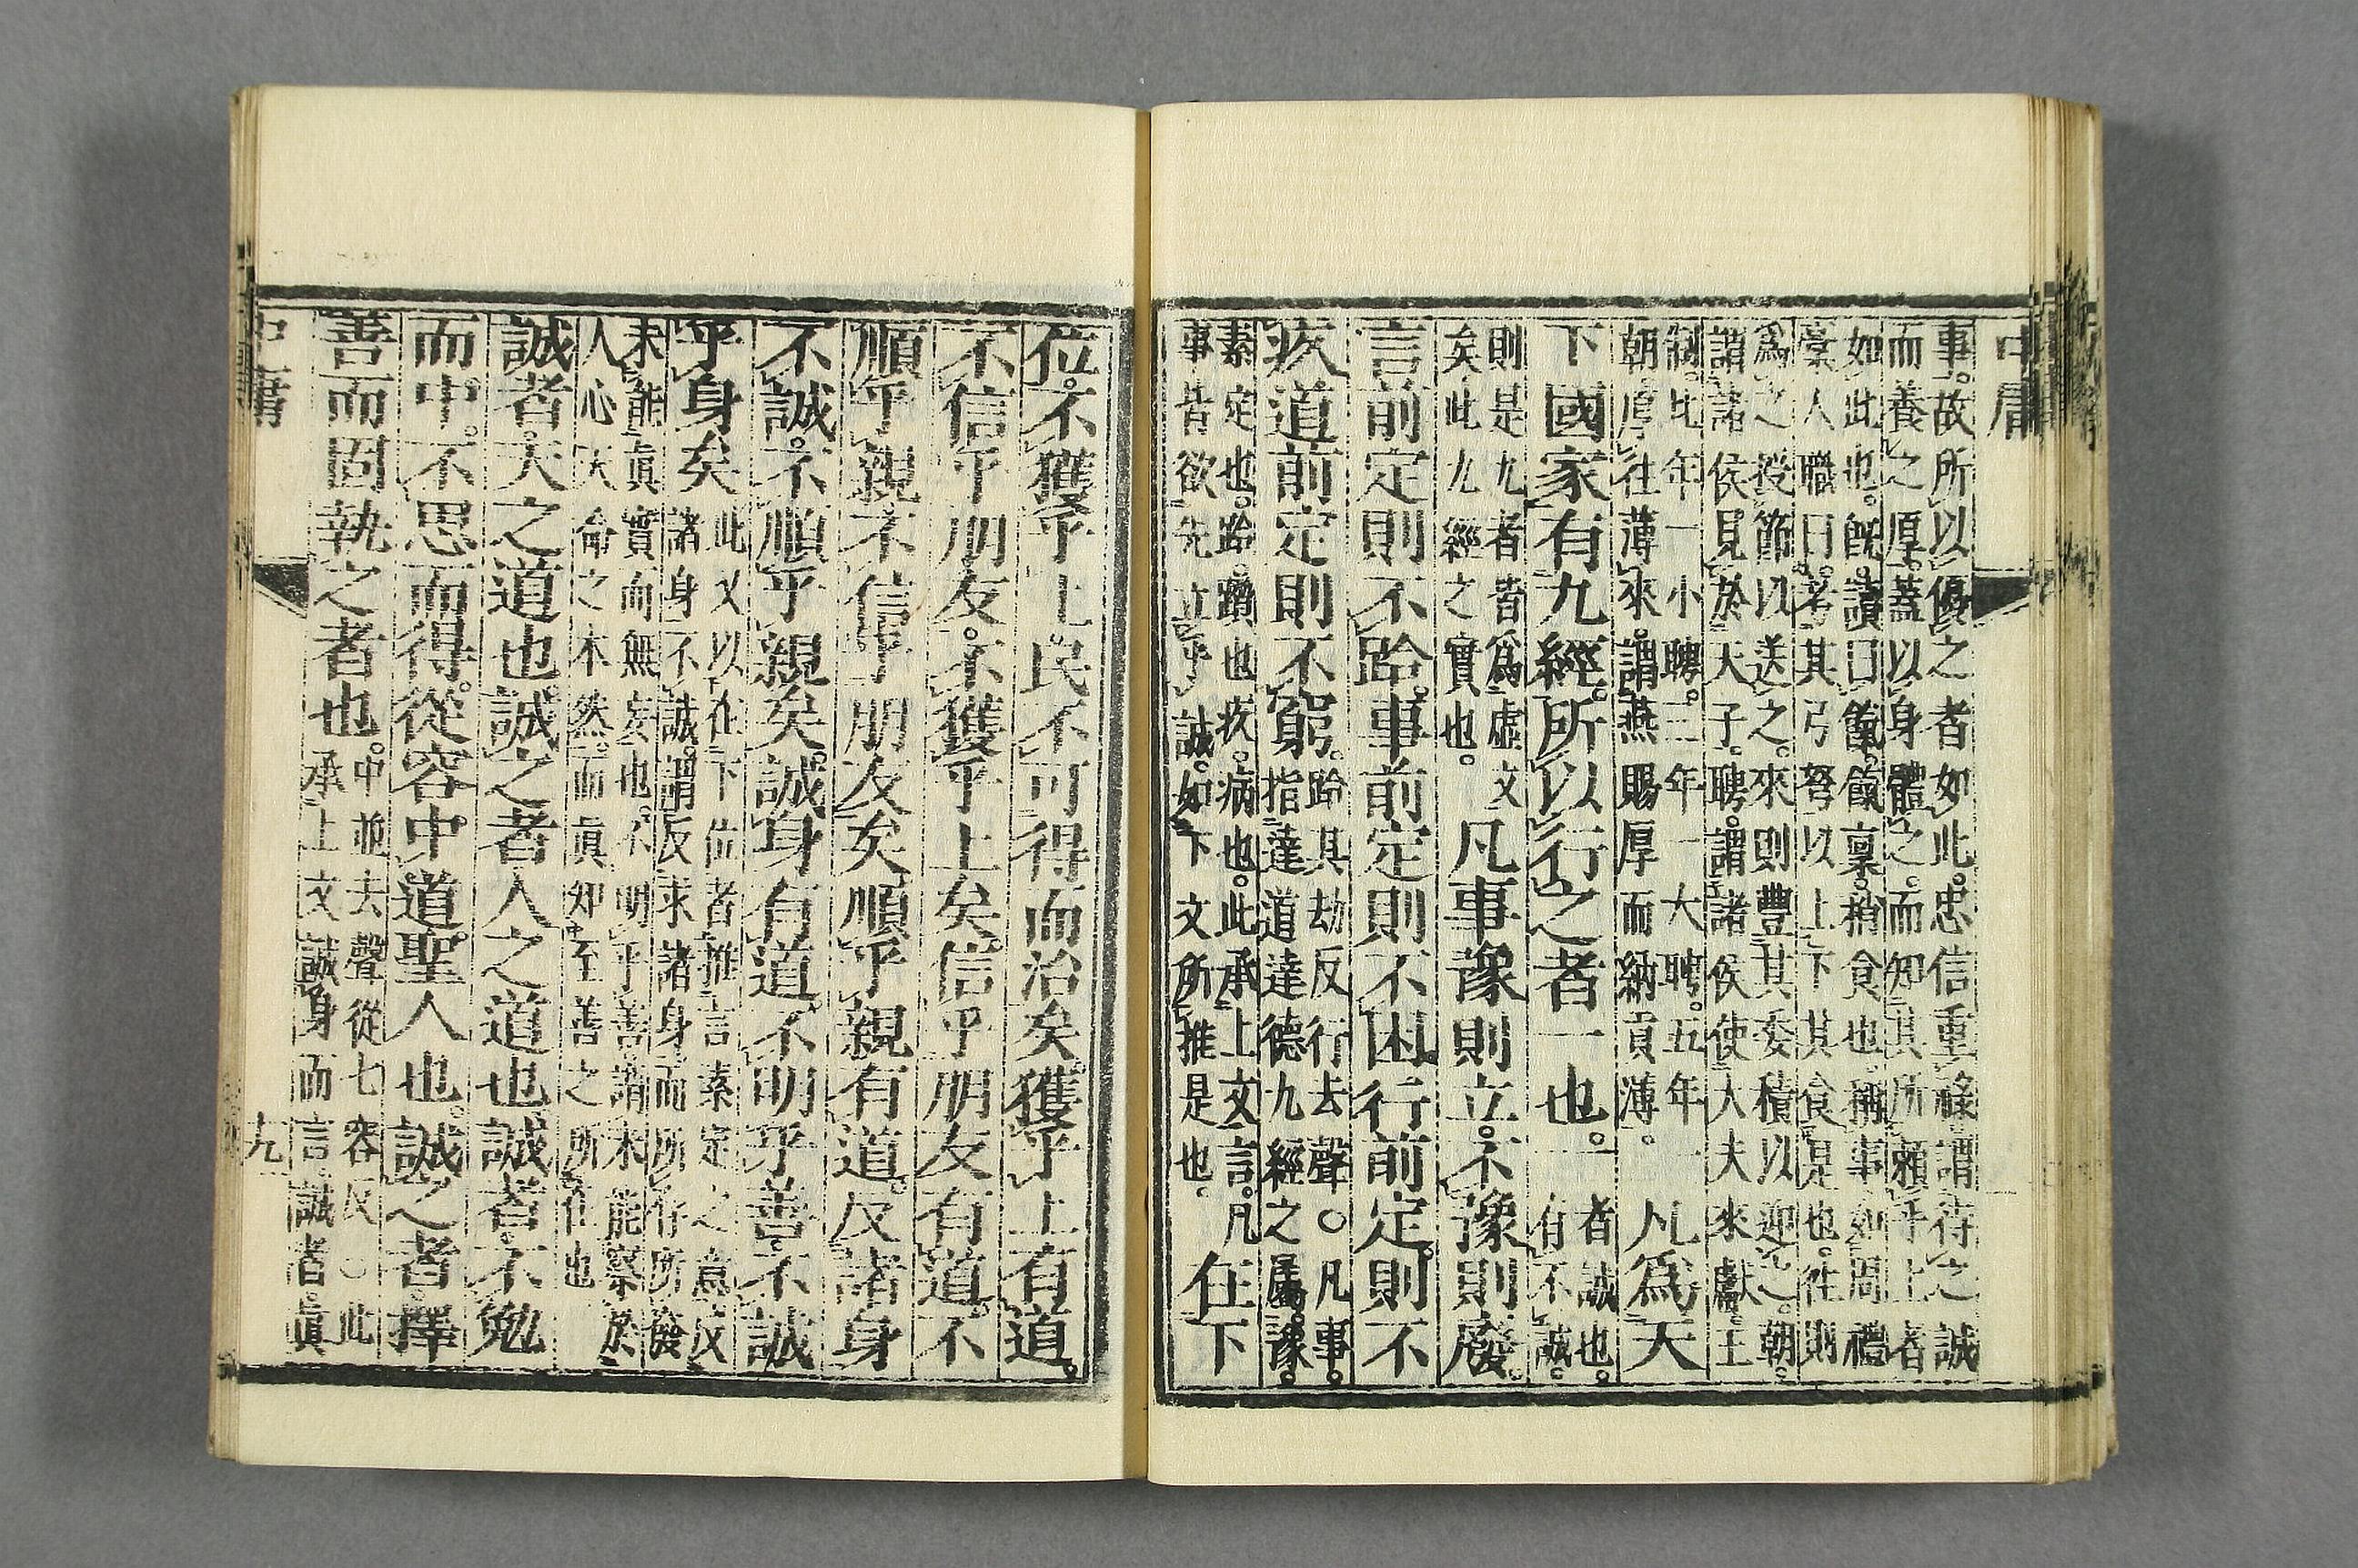 中庸
事。故所以優之者如此。忠信重祿。謂待之誠
而養之厚。蓋以身體之。而知其所賴乎上者
如此也。旣。讀曰餼。餼稟。稍食也。稱事。如周禮
槀人職曰。考其弓弩。以上下其食。是也。往則
爲之授節以送之。來則豐其委積以迎之。朝。
謂諸侯見於天子。聘。謂諸侯使大夫來獻。王
制。比年一小聘。三年一大聘。五年一
朝。厚往薄來。謂燕賜厚而納貢薄。
凡爲天
下國家有九經。所以行之者一也。
一者誠也。
一有不誠。
則是九者皆爲虛文
矣此九經之實也。
凡事豫則立。不豫則廢。
言前定則不跲。事前定則不困。行前定則不
疚。道前定則不窮。
跲其劫反行去聲。○凡事。
指達道達德九經之屬。豫。
素定也。跲。躓也。疚。病也。此承上文言。凡
事皆欲先立乎誠。如下文所推是也。
在下
位。不獲乎上。民不可得而治矣。獲乎上有道。
不信乎朋友。不獲乎上矣。信乎朋友有道。不
順乎親。不信乎朋友矣。順乎親有道。反諸身
不誠。不順乎親矣。誠身有道。不明乎善。不誠
乎身矣
此又以在下位者推言素定之意反
諸身不誠。謂反求諸身而所存所發
未能眞實而無妄也。不明乎善。謂未能察於
人心天命之本然。而眞知至善之所在也
誠者。天之道也誠之者人之道也誠者。不勉
而中。不思而得。從容中道。聖人也。誠之者。擇
善而固執之者也。
中並去聲從七容反○此
承上文誠身而言。誠者。眞
中庸
九